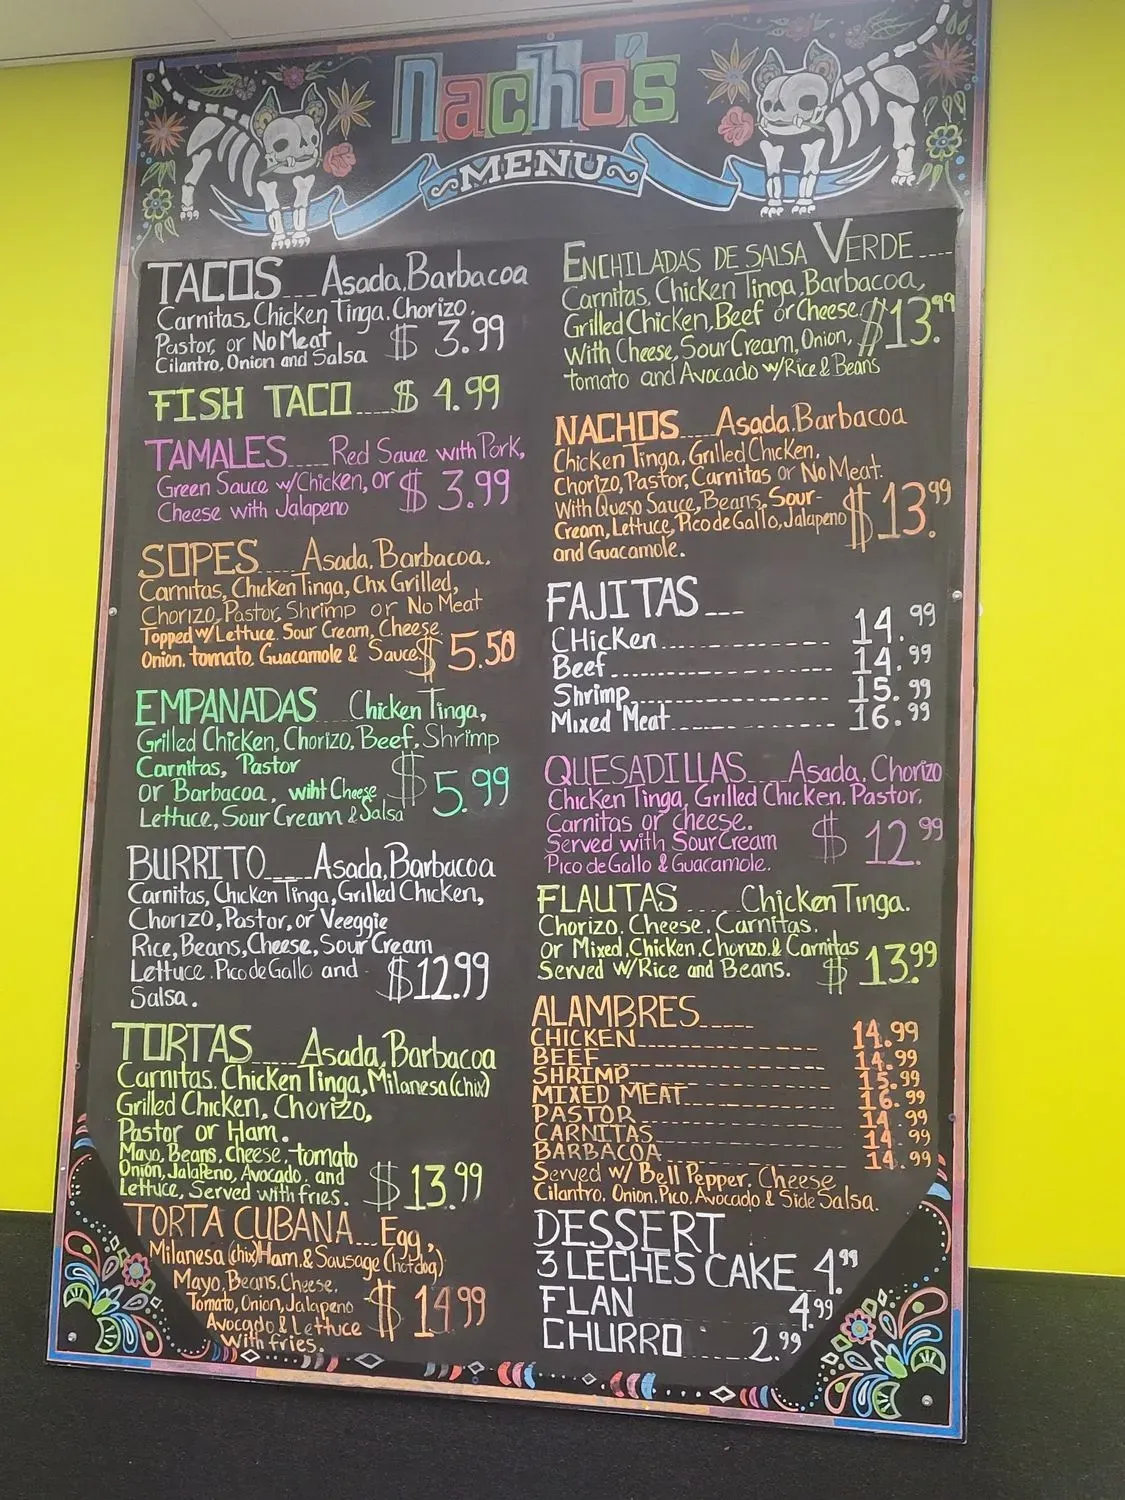 nacho's
MENU
TACOS___Asada, Barbacoa
Carnitas, Chicken Tinga, Chorizo,
Pastor, or No Meat
Cilantro, Onion and Salsa
$ 3.99
FISH TACO....$ 4.99
TAMALES.......Red Sauce with Pork,
Green Sauce w/Chicken, or
Cheese with Jalapeno
$ 3.99
SOPES___ Asada, Barbacoa,
Carnitas, Chicken Tinga, Chx Grilled,
Chorizo, Pastor, Shrimp or No Meat
Topped w/Lettuce, Sour Cream, Cheese
Onion, tomato, Guacamole & Sauce
$ 5.50
EMPANADAS....Chicken Tinga,
Grilled Chicken, Chorizo, Beef, Shrimp
Carnitas, Pastor
or Barbacoa, wiht Cheese
Lettuce, Sour Cream & Salsa
$ 5.99
BURRITO____Asada, Barbacoa
Carnitas, Chicken Tinga, Grilled Chicken,
Chorizo, Pastor, or Veeggie
Rice, Beans, Cheese, Sour Cream
Lettuce, Pico de Gallo and
Salsa.
$12.99
TORTAS____Asada, Barbacoa
Carnitas, Chicken Tinga, Milanesa (chix)
Grilled Chicken, Chorizo,
Pastor or Ham.
Mayo, Beans, cheese, tomato
Onion, Jalapeno, Avocado, and
Lettuce, Served with fries.
$13.99
TORTA CUBANA...Egg,
Milanesa (chix) Ham & Sausage (hotdog)
Mayo, Beans, Cheese,
Tomato, Onion, Jalapeno
Avocado & Lettuce
With fries.
$ 14.99
ENCHILADAS DE SALSA VERDE____
Carnitas, Chicken Tinga, Barbacoa,
Grilled Chicken, Beef or Cheese
With Cheese, Sour Cream, Onion,
tomato and Avocado w/Rice & Beans
$13.99
NACHOS___Asada, Barbacoa
Chicken Tinga, Grilled Chicken,
Chorizo, Pastor, Carnitas or No Meat.
With Queso Sauce, Beans, Sour-
Cream, Lettuce, Pico de Gallo, Jalapeno
and Guacamole.
$13.99
FAJITAS___
CHicken............14.99
Beef............14.99
Shrimp............15.99
Mixed Meat............16.99
QUESADILLAS___Asada, Chorizo
Chicken Tinga, Grilled Chicken, Pastor,
Carnitas or cheese.
Served with Sour Cream
Pico de Gallo & Guacamole.
$ 12.99
FLAUTAS......Chicken Tinga.
Chorizo, Cheese, Carnitas,
or Mixed, Chicken, Chorizo & Carnitas
Served w/Rice and Beans.
$ 13.99
ALAMBRES_____
CHICKEN............14.99
BEEF............14.99
SHRIMP............15.99
MIXED MEAT............16.99
PASTOR............14.99
CARNITAS............14.99
BARBACOA............14.99
Served w/ Bell Pepper, Cheese
Cilantro, Onion, Pico, Avocado & Side Salsa.
DESSERT
3 LECHES CAKE 4.99
FLAN 4.99
CHURRO......2.99